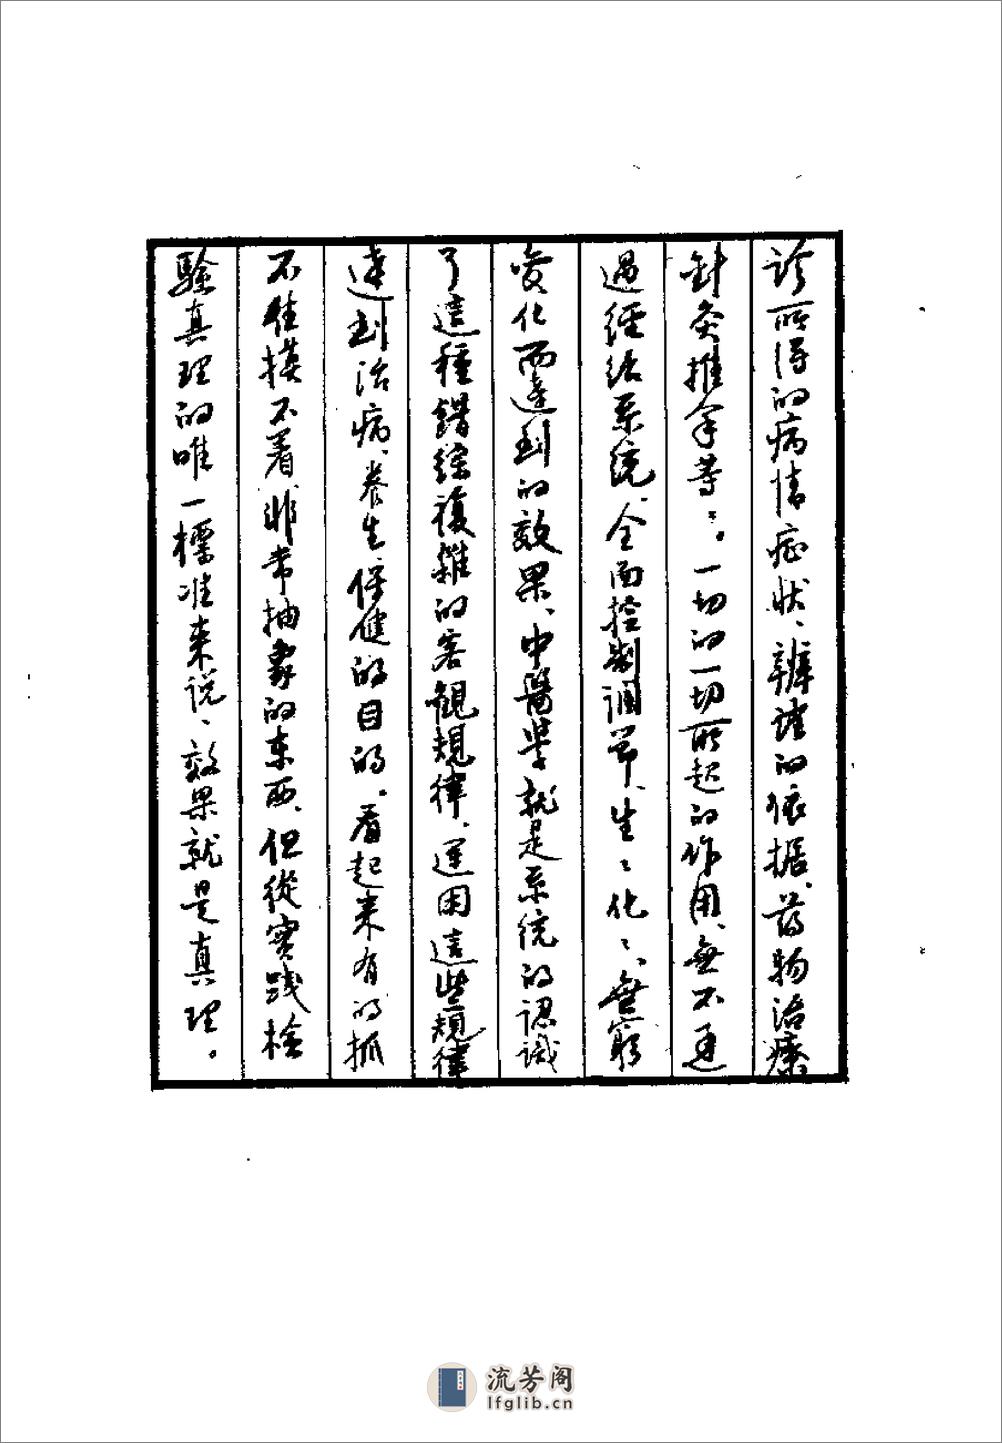 診所得的病情症状、辨证的依据、药物治療、
針灸推拿等々。一切的一切所起的作用、無不通
過经络系统、全面控制调节、生々化々、無窮
变化而達到的效果、中醫學就是系统的認識
了這種錯綜複雜的客觀規律、運用這些規律
達到治病、养生、保健的目的。看起来有的抓
不住摸不着、非常抽象的东西、但從實践检
驗真理的唯一标准来说、效果就是真理。
流芳阁
lfglib.cn